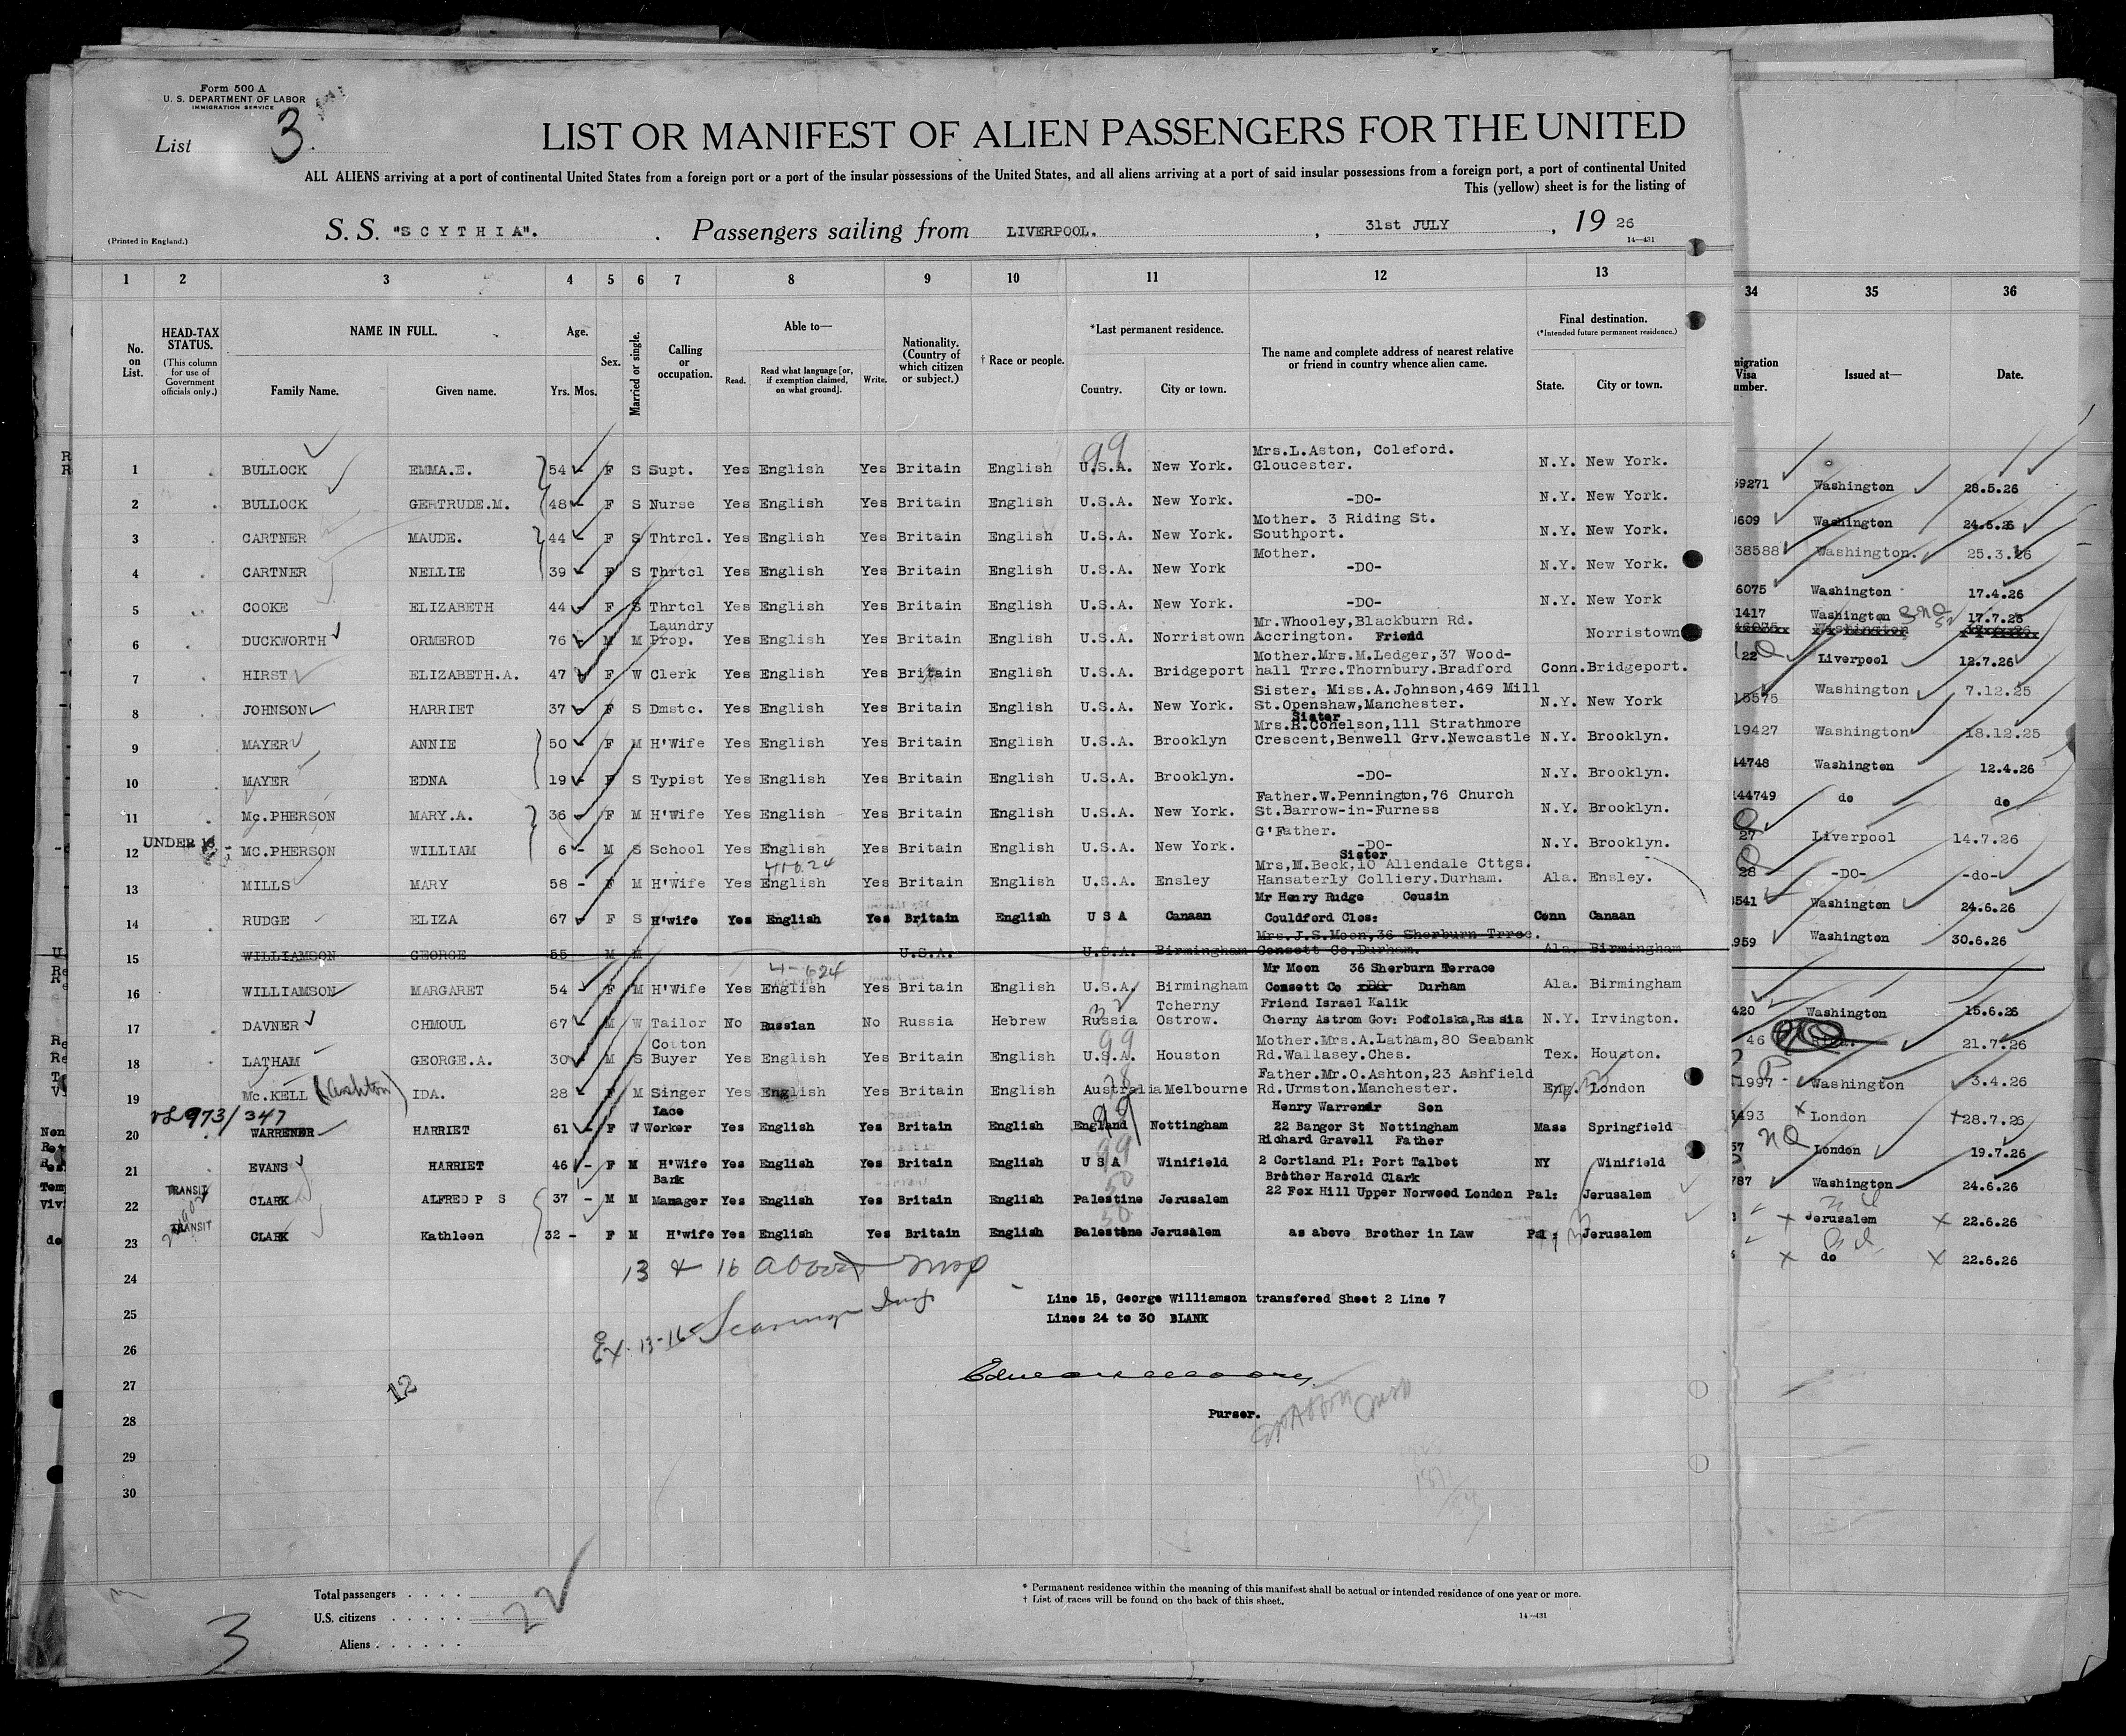 Form 500 A
U. S. DEPARTMENT OF LABOR
IMMIGRATION SERVICE
List 3.
LIST OR MANIFEST OF ALIEN PASSENGERS FOR THE UNITED
ALL ALIENS arriving at a port of continental United States from a foreign port or a port of the insular possessions of the United States, and all aliens arriving at a port of said insular possessions from a foreign port, a port of continental United
This (yellow) sheet is for the listing of
(Printed in England.)
S. S. "SCYTHIA". . Passengers sailing from LIVERPOOL. , 31st JULY , 19 26
14—431
1 2 3 4 5 6 7 8 9 10 11 12 13 34 35 36
No. on List.
HEAD-TAX STATUS.
(This column for use of Government officials only.)
NAME IN FULL.
Family Name. Given name.
Age.
Yrs. Mos.
Sex.
Married or single.
Calling or occupation.
Able to—
Read. Read what language [or, if exemption claimed, on what ground]. Write.
Nationality. (Country of which citizen or subject.)
† Race or people.
*Last permanent residence.
Country. City or town.
The name and complete address of nearest relative or friend in country whence alien came.
Final destination.
(*Intended future permanent residence.)
State. City or town.
migration Visa umber. Issued at— Date.
99 Mrs.L.Aston, Coleford.
1 BULLOCK EMMA.E. 54 F S Supt. Yes English Yes Britain English U.S.A. New York. Gloucester. N.Y. New York.
59271 Washington 28.5.26
2 BULLOCK GERTRUDE.M. 48 F S Nurse Yes English Yes Britain English U.S.A. New York. -DO- N.Y. New York.
3609 Washington 24.6.26
Mother. 3 Riding St.
3 CARTNER MAUDE. 44 F S Thtrcl. Yes English Yes Britain English U.S.A. New York. Southport. N.Y. New York.
38588 Washington. 25.3.26
Mother.
4 CARTNER NELLIE 39 F S Thrtcl Yes English Yes Britain English U.S.A. New York -DO- N.Y. New York.
6075 Washington 17.4.26
5 COOKE ELIZABETH 44 F S Thrtcl Yes English Yes Britain English U.S.A. New York. -DO- N.Y. New York
1417 Washington 17.7.26
Laundry Mr.Whooley,Blackburn Rd.
6 DUCKWORTH ORMEROD 76 M M Prop. Yes English Yes Britain English U.S.A. Norristown Accrington. Friend Norristown
22 Liverpool 12.7.26
Mother.Mrs.M.Ledger,37 Wood-
7 HIRST ELIZABETH.A. 47 F W Clerk Yes English Yes Britain English U.S.A. Bridgeport hall Trrc.Thornbury.Bradford Conn. Bridgeport.
15575 Washington 7.12.25
Sister. Miss.A.Johnson,469 Mill
8 JOHNSON HARRIET 37 F S Dmstc. Yes English Yes Britain English U.S.A. New York. St.Openshaw,Manchester. N.Y. New York
19427 Washington 18.12.25
Sister
Mrs.R.Cohelson,111 Strathmore
9 MAYER ANNIE 50 F M H'Wife Yes English Yes Britain English U.S.A. Brooklyn Crescent,Benwell Grv.Newcastle N.Y. Brooklyn.
44748 Washington 12.4.26
10 MAYER EDNA 19 F S Typist Yes English Yes Britain English U.S.A. Brooklyn. -DO- N.Y. Brooklyn.
144749 do do
Father.W.Pennington,76 Church
11 Mc.PHERSON MARY.A. 36 F M H'Wife Yes English Yes Britain English U.S.A. New York. St.Barrow-in-Furness N.Y. Brooklyn.
27 Liverpool 14.7.26
G'Father.
12 UNDER 16 MC.PHERSON WILLIAM 6 M S School Yes English Yes Britain English U.S.A. New York. -DO- N.Y. Brooklyn.
28 -DO- -do-
Sister
Mrs,M.Beck,10 Allendale Cttgs.
13 MILLS MARY 58 - F M H'Wife Yes English Yes Britain English U.S.A. Ensley Hansaterly Colliery.Durham. Ala. Ensley.
3541 Washington 24.6.26
Mr Henry Rudge Cousin
14 RUDGE ELIZA 67 F S H'wife Yes English Yes Britain English U S A Canaan Couldford Clos: Conn Canaan
959 Washington 30.6.26
Mrs.J.S.Moon,36 Sherburn Trrce.
15 WILLIAMSON GEORGE 55 M M U.S.A. U.S.A. Birmingham Consett Co.Durham. Ala. Birmingham
4-624 Mr Moon 36 Sherburn Terrace
16 WILLIAMSON MARGARET 54 F M H'Wife Yes English Yes Britain English U.S.A. Birmingham Consett Co Durham Ala. Birmingham
420 Washington 15.6.26
32 Tcherny Friend Israel Kalik
17 DAVNER CHMOUL 67 M W Tailor No Russian No Russia Hebrew Russia Ostrow. Cherny Astrom Gov: Podolska,Russia N.Y. Irvington.
46 21.7.26
Cotton 99 Mother.Mrs.A.Latham,80 Seabank
18 LATHAM GEORGE.A. 30 M S Buyer Yes English Yes Britain English U.S.A. Houston Rd.Wallasey.Ches. Tex. Houston.
1997 Washington 3.4.26
Father.Mr.O.Ashton,23 Ashfield
19 Mc.KELL (Ashton) IDA. 28 F M Singer Yes English Yes Britain English Australia Melbourne Rd.Urmston.Manchester. Eng. London
5493 London 28.7.26
973/347 Lace 99 Henry Warrener Son
20 WARRENER HARRIET 61 - F W Worker Yes English Yes Britain English England Nottingham 22 Bangor St Nottingham Mass Springfield
57 London 19.7.26
99 Richard Gravell Father
21 EVANS HARRIET 46 - F M H'Wife Yes English Yes Britain English U S A Winifield 2 Cortland Pl: Port Talbot NY Winifield
787 Washington 24.6.26
TRANSIT Bank 50 Brother Harold Clark
22 CLARK ALFRED P S 37 - M M Manager Yes English Yes Britain English Palestine Jerusalem 22 Fox Hill Upper Norwood London Pal: Jerusalem
Jerusalem 22.6.26
TRANSIT 50
23 CLARK Kathleen 32 - F M H'wife Yes English Yes Britain English Palestine Jerusalem as above Brother in Law Pal: Jerusalem
do 22.6.26
24
13 & 16 above
25
Line 15, George Williamson transfered Sheet 2 Line 7
Lines 24 to 30 BLANK
26
Ex. 13-16
27
12
28
Purser.
29
30
Total passengers . . . .
U.S. citizens . . . . .
Aliens . . . . . .
22
3
* Permanent residence within the meaning of this manifest shall be actual or intended residence of one year or more.
† List of races will be found on the back of this sheet.
14—431